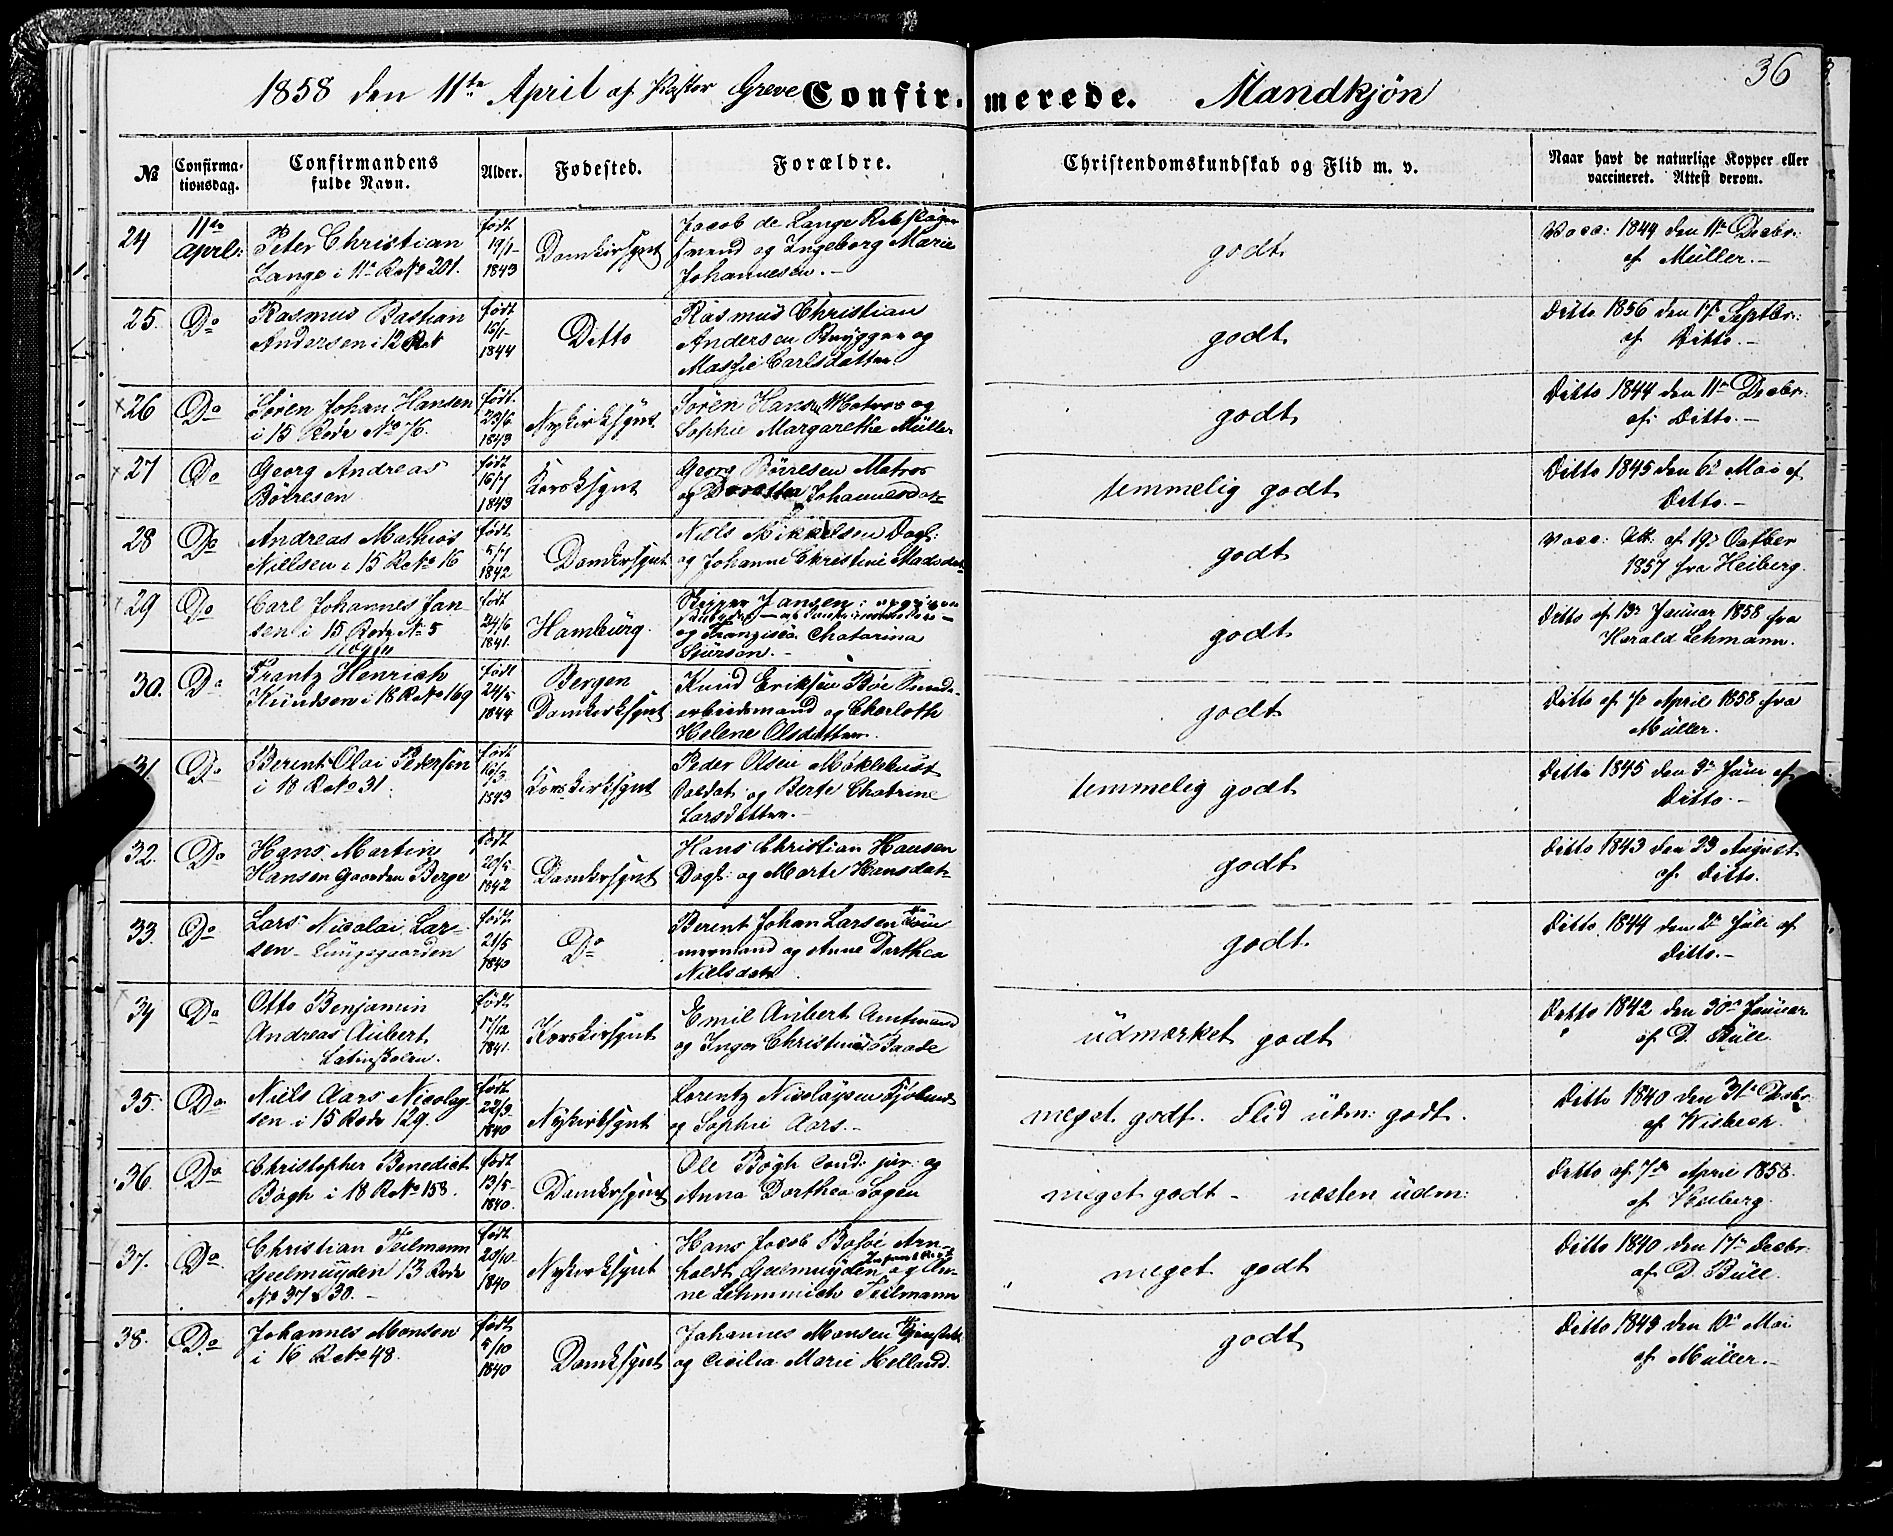 1858 den 11te April af Pastor Greve Confirmerede. Mandkjøn 36
№ Confirmationsdag. Confirmandens fulde Navn. Alder. Fødested. Forældre. Christendomskundskab og Flid m. v. Naar havt de naturlige Kopper eller vaccineret. Attest derom.
24 11te April: Peter Christian
Lange i 11te R. No 201.
født 19/1 1843
Domkirsgnt
Jacob de Lange
og Ingeborg Marie
Johannesen.
godt
Vacc: 1844 den 11te Decbr:
af Müller.
25. Do Rasmus Bastian
Andersen i 12 Rd
født 15/1 1844
Ditto
Rasmus Christian
Andersen Brygger og
Carlsdatter.
godt
Ditto 1856 den 17 Septbr:
af Ditto.
26 Do Søren Johan Hansen
i 15 Rode No 76.
født 23/6 1843
Nykirksgnt
Søren Hansen Matros og
Sophie Margarethe Müller
godt
Ditto 1844 den 11te Decbr:
af Ditto.
27 Do Georg Andreas
Børresen
født 16/7 1843
Korsksgnt
Georg Børresen Matros
og Dorothea Johannesdat
temmelig godt
Ditto 1845 den 6te Mai af
Ditto.
28 Do Andreas Mathias
Nielsen i 15 R. No 16
født 5/7 1842
Domkirsgnt
Niels Mikkelsen Dagl:
og Johanne Christine Madsdat
godt
Vacc: Att. af 19de Octber
1857 fra Heiberg.
29 Do Carl Johannes Jansen
i 15 Rode No 5
født 24/6 1841.
Hamburg.
Skipper Jansen
og Franzisca Chatarina
Sjursen.
godt
Ditto af 13de Januar 1858 fra
Harald Lehmann.
30. Do Frantz Henrich
Knudsen i 18 R. No 169
født 24/5 1844
Bergen
Domkirksgnt
Knud Eriksen Bøe
arbeidsmand og Charloth
Helene Olsdatter.
godt
Ditto af 7de April 1858 fra
Müller.
31. Do Berent Olai Pedersen
i 18 R. No 31.
født 16/3 1843
Korskirksgnt
Peder Olsen Møklebust
Soldat og Berte Chatrine
Larsdatter.
temmelig godt
Ditto 1845 den 3de Juni af
Ditto.
32. Do Hans Martin
Hansen Gaarden Berge
født 20/5 1842
Domkirsgnt
Hans Christian Hansen
Dagl: og Marte Hansdat
godt
Ditto 1843 den 23 August
af Ditto.
33. Do Lars Nicolai Larsen
Lungegaarden
født 21/5 1840
Do
Berent Johan Larsen Tømmermand
og Anne Dorthea
Nielsdatr
godt
Ditto 1844 den 2de Juli af
Ditto.
34 Do Otto Benjamin
Andreas Aubert
Latinskolen.
født 17/12 1841.
Korskirsgnt
Emil Aubert Amtmand
og Inger Christine Baade
udmærket godt
Ditto 1842 den 30te Januar
af D. Büll.
35. Do Niels Aars Nicolaysen
i 15 Rode 129.
født 22/3 1840
Nykirksgnt
Lorentz Nicolaysen Kjøbmd
og Sophie Aars
meget godt. Flid üdm: godt.
Ditto 1840 den 31te Decbr
af Wisbech.
36. Do Christopher Benedict
Bøgh i 18 R. No 158.
født 13/5 1840.
Domkrsgnt
Ole Bøgh Cand: jur: og
Anna Dorthea Sagen
meget godt - næsten üdm:
Ditto af 7de April 1858.
af
37. Do Christian Teilmann
Geelmuyden 13 Rode
No 37 & 30.
født 20/10 1840
Nykirksgnt
Hans Jacob Arnholdt
Geelmuyden og Anne
Lehmmich Teilmann
meget godt
Ditto 1840 den 17de Decbr:
af D. Büll.
38. Do Johannes Monsen
i 16 R. No 48.
født 5/10 1840
Domksgnt
Johannes Monsen
og Cicilia Marie Helland.
godt
Ditto 1843 den 10de Mai
af Müller.